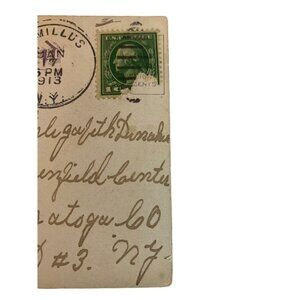 MILLUS
JAN
PM
1913
N.Y.
U.S. POSTAGE
CENTS
lizabeth Donahue
enfield Center
ratoga CO
D #3. NY.